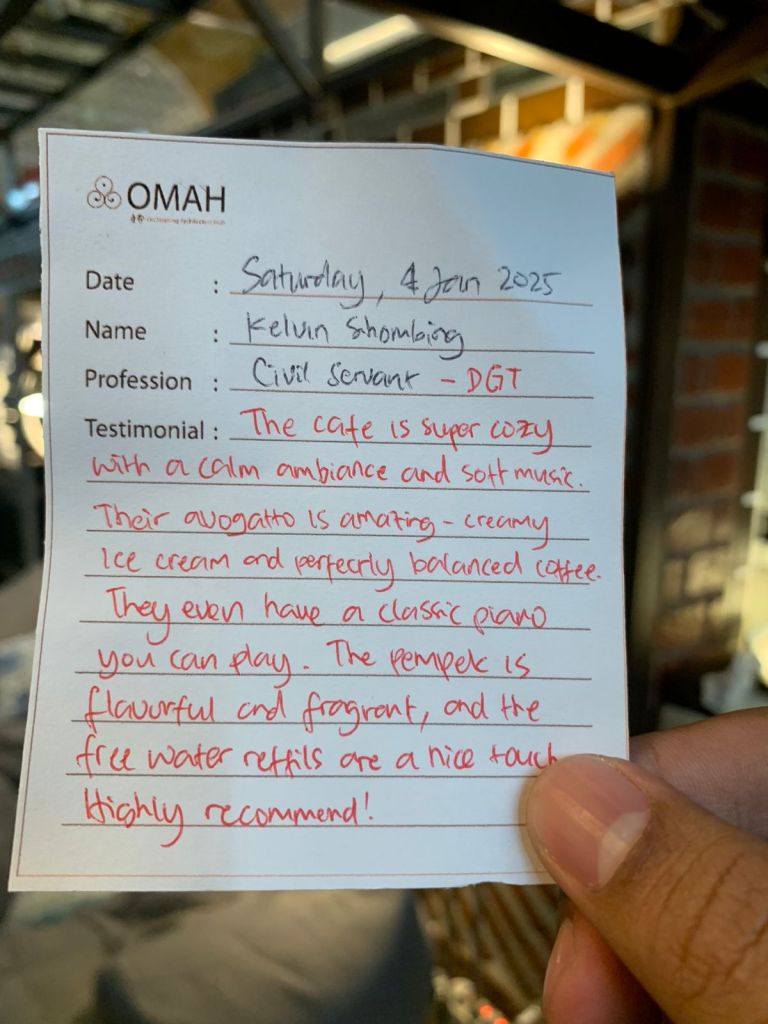 OMAH
Date : Saturday, 4 Jan 2025
Name : Kelvin Sihombing
Profession : Civil Servant - DGT
Testimonial : The cafe is super cozy
with a calm ambiance and soft music.
Their avogatto is amazing - creamy
Ice cream and perfectly balanced coffee.
They even have a classic piano
you can play. The pempek is
flavourful and fragrant, and the
free water reffils are a nice touch
Highly recommend!